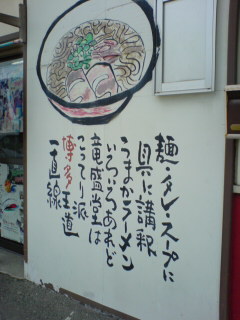 麺・タレ・スープに
具に講釈
うまかラーメン
いろいろあれど
竜盛堂は
こってり派
博多王道
一直線